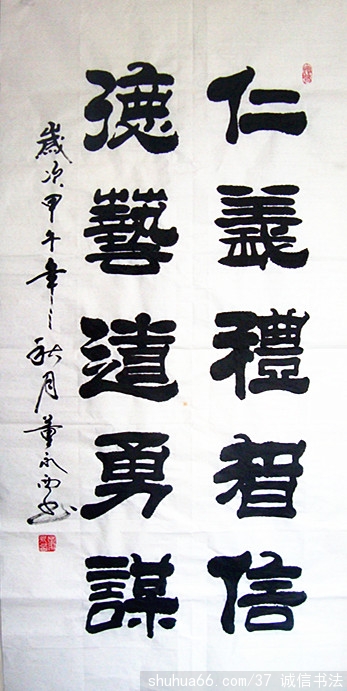 仁義禮智信
德藝勇謀
歲次甲午年之秋月董永西书
shuhua66.com/37 诚信书法